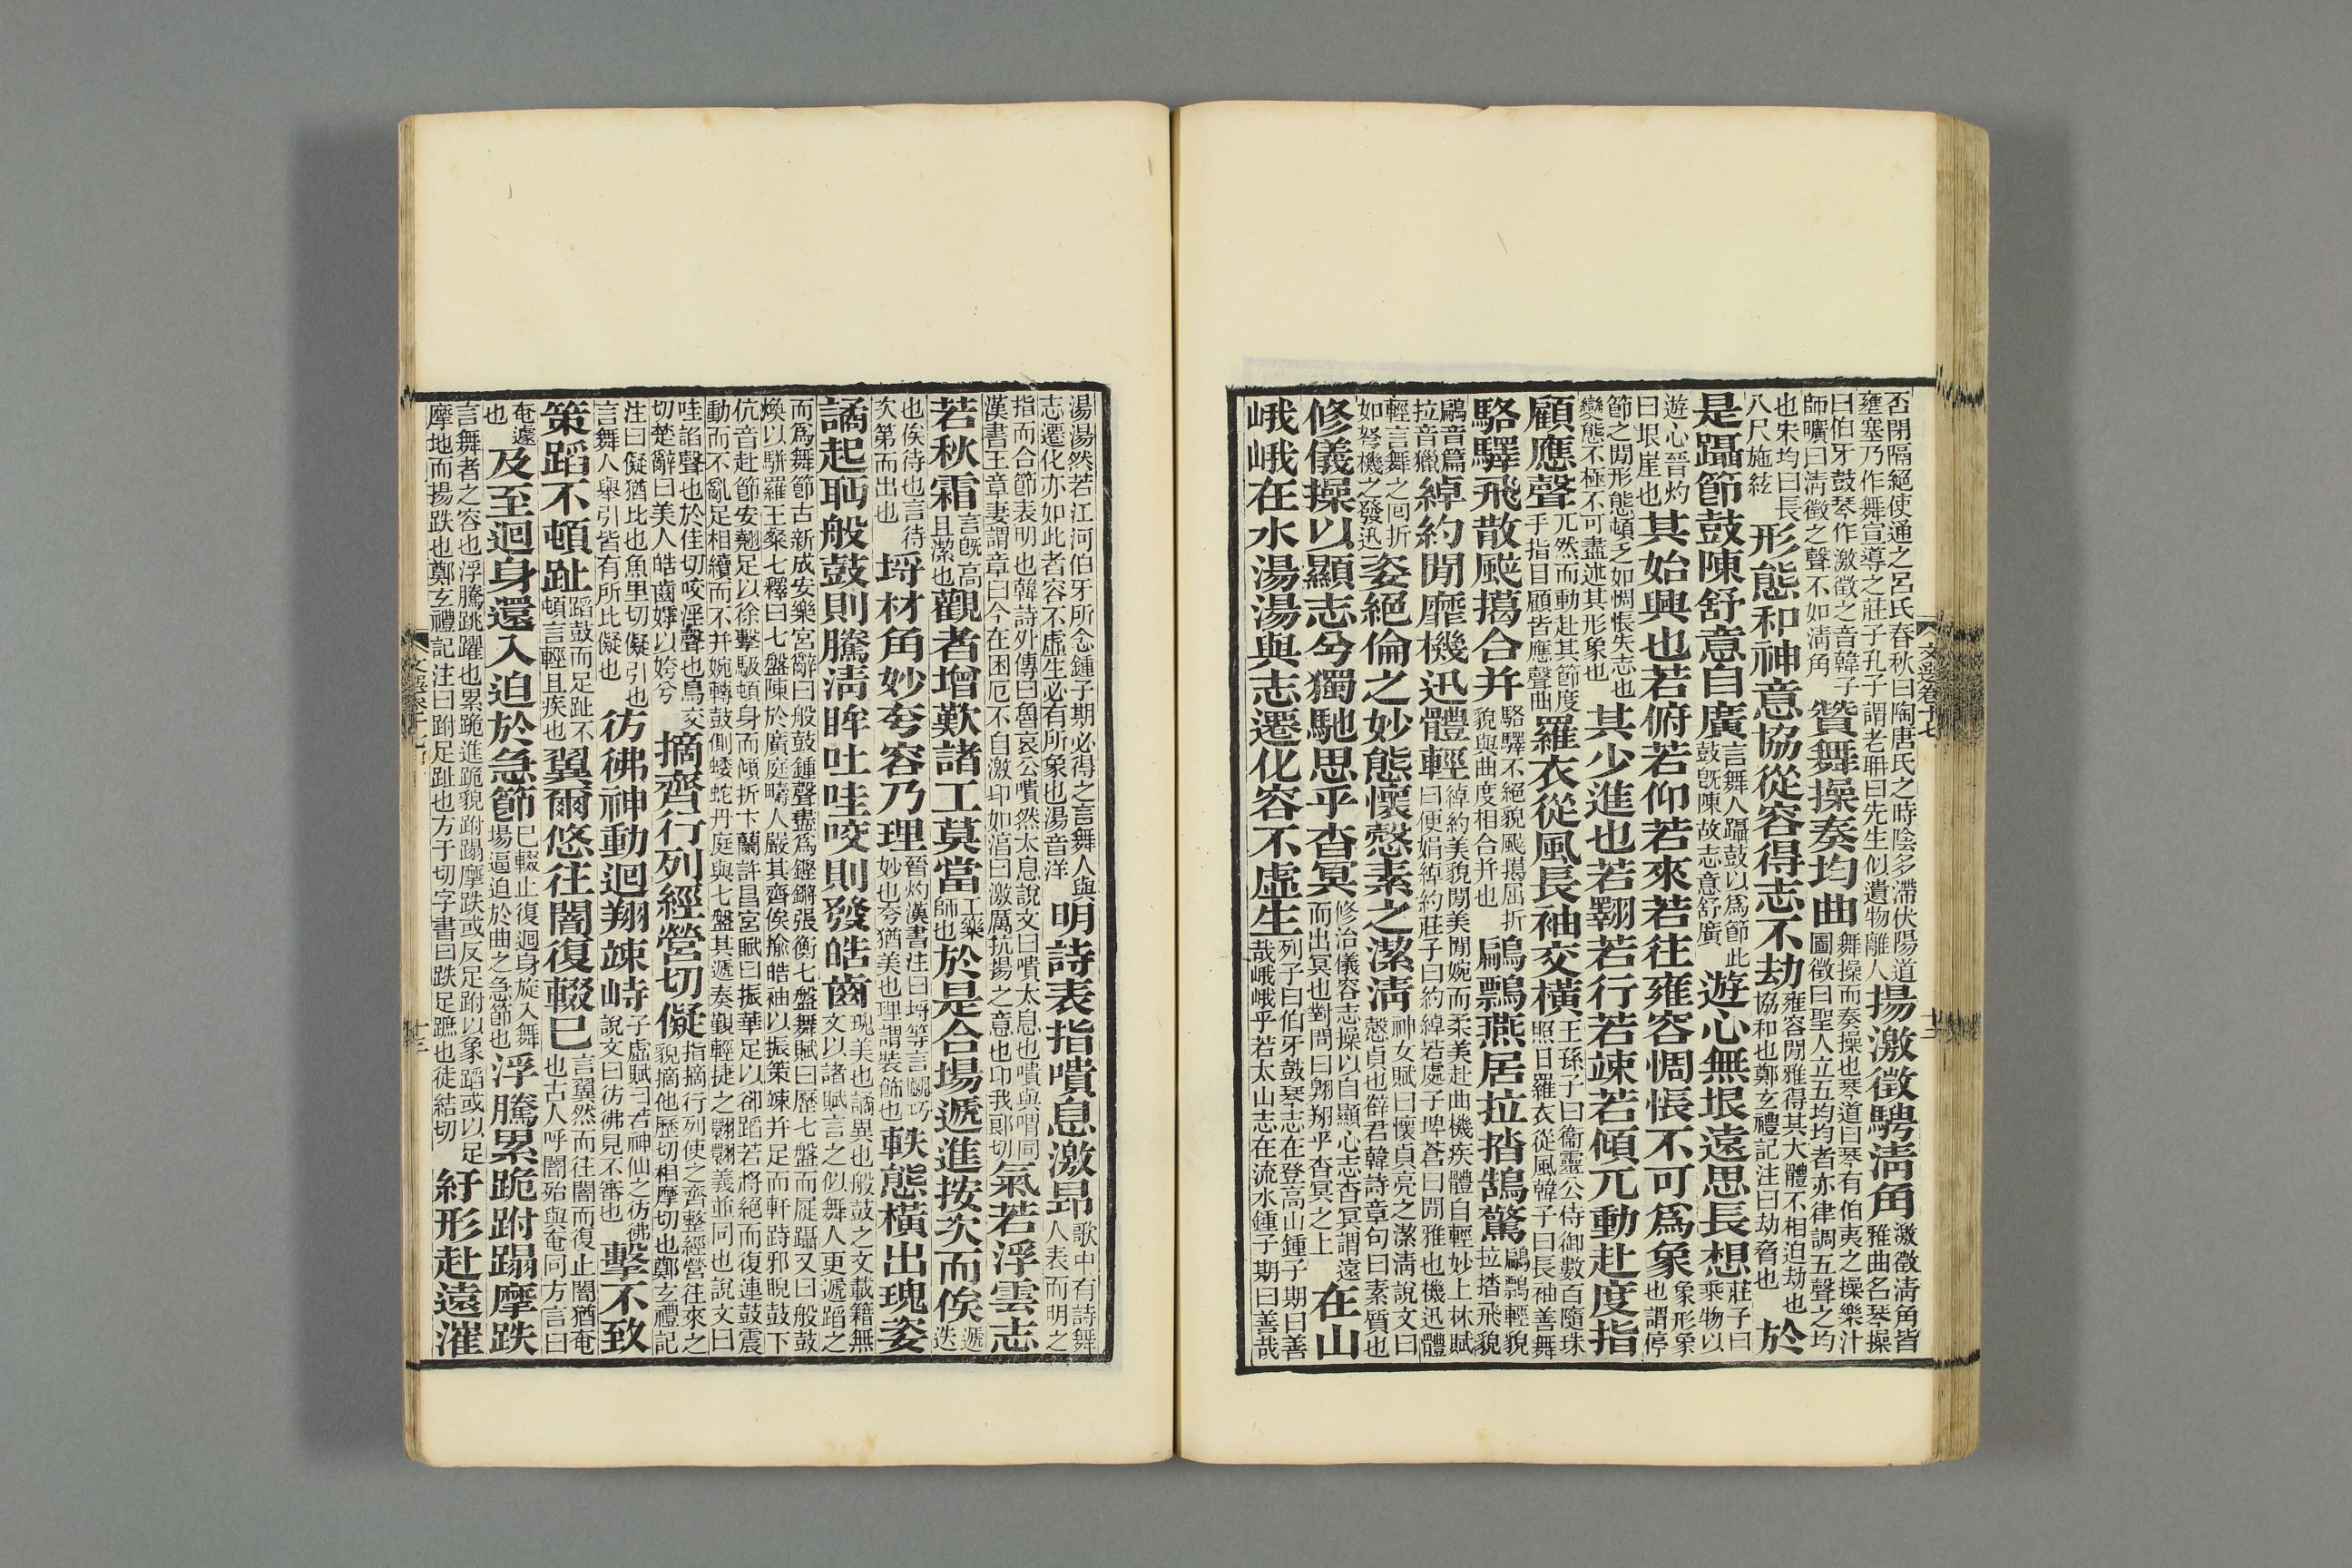 否閉隔絕使通之呂氏春秋曰陶唐氏之時陰多滯伏陽道壅塞乃作舞宣導之莊子孔子謂老聃曰先生似遺物離人揚激徵騁清角激徵清角皆雅曲名琴操
曰伯牙鼓琴作激徵之音韓子師曠曰清徵之聲不如清角贊舞操奏均曲舞操而奏操也琴道曰琴有伯夷之操樂汁圖徵曰聖人立五均均者亦律調五聲之均
也宋均曰長八尺施絃形態和神意協從容得志不劫雍容閒雅得其大體不相迫劫也協和也鄭玄禮記注曰劫脅也於
是躡節鼓陳舒意自廣言舞人躡鼓以爲節此鼓旣陳故志意舒廣遊心無垠遠思長想莊子曰乘物以
遊心晉灼曰垠崖也其始興也若俯若仰若來若往雍容惆悵不可爲象象形象也謂停
節之閒形態頓乏如惆悵失志也變態不極不可盡述其形象也其少進也若翾若行若竦若傾兀動赴度指
顧應聲兀然而動赴其節度手指目顧皆應聲曲羅衣從風長袖交橫王孫子曰衞靈公侍御數百隨珠照日羅衣從風韓子曰長袖善舞
駱驛飛散颯擖合并駱驛不絕貌颯擖屈折貌與曲度相合并也鶣䴏燕居拉㧺鵠驚鶣䴏輕貌拉㧺飛貌
鶣音篇拉音獵綽約閒靡機迅體輕綽約美貌閒美閒婉而柔美赴曲機疾體自輕妙上林賦曰便娟綽約莊子曰約綽若處子埤蒼曰閒雅也機迅體
輕言舞之囘折如弩機之發迅姿絕倫之妙態懷慤素之潔清神女賦曰懷貞亮之潔清說文曰慤貞也薛君韓詩章句曰素質也
修儀操以顯志兮獨馳思乎杳冥修治儀容志操以自顯心志杳冥謂遠而出冥也對問曰翱翔乎杳冥之上在山
峨峨在水湯湯與志遷化容不虛生列子曰伯牙鼓琴志在登高山鍾子期曰善哉峨峨乎若太山志在流水鍾子期曰善哉
湯湯然若江河伯牙所念鍾子期必得之言舞人與志遷化亦如此者容不虛生必有所象也湯音洋明詩表指嘳息激昂歌中有詩舞人表而明之
指而合節表明也韓詩外傳曰魯哀公嘳然太息說文曰嘳太息也嘳與喟同漢書王章妻謂章曰今在困厄不自激卬如淳曰激厲抗揚之意也卬我郎切氣若浮雲志
若秋霜言旣高且潔也觀者增歎諸工莫當工樂師也於是合場遞進按次而俟遞迭
也俟待也言待次第而出也埒材角妙夸容乃理晉灼漢書注曰埒等言鬬巧妙也夸猶美也理謂裝飾也軼態橫出瑰姿
譎起眄般鼓則騰清眸吐哇咬則發皓齒瑰美也譎異也般鼓之文載籍無文以諸賦言之似舞人更遞蹈之
而爲舞節古新成安樂宮辭曰般鼓鍾聲盡爲鏗鏘張衡七盤舞賦曰歷七盤而屣躡又曰般鼓煥以駢羅王粲七釋曰七盤陳於廣庭疇人嚴其齊俟揄皓袖以振策竦并足而軒跱邪睨鼓下
伉音赴節安翹足以徐擊馺頓身而傾折卞蘭許昌宮賦曰振華足以卻蹈若將絕而復連鼓震動而不亂足相續而不并婉轉鼓側蜲蛇丹庭與七盤其遞奏觀輕捷之翾翾義並同也說文曰
哇諂聲也於佳切咬淫聲也烏交切楚辭曰美人皓齒嫮以姱兮摘齊行列經營切儗指摘行列使之齊整經營往來之貌摘他歷切相摩切也鄭玄禮記
注曰儗猶比也魚里切儗引也言舞人舉引皆有所比儗也彷彿神動迴翔竦峙子虛賦曰若神仙之彷彿說文曰彷彿見不審也擊不致
策蹈不頓趾蹈鼓而足趾不頓言輕且疾也翼爾悠往闇復輟已言翼然而往闇而復止闇猶奄也古人呼闇殆與奄同方言曰
奄遽也及至迴身還入迫於急節已輟止復迴身旋入舞場逼迫於曲之急節也浮騰累跪跗蹋摩跌
言舞者之容也浮騰跳躍也累跪進跪貌跗蹋摩跌或反足跗以象蹈或以足摩地而揚跌也鄭玄禮記注曰跗足趾也方于切字書曰跌足蹠也徒結切紆形赴遠漼